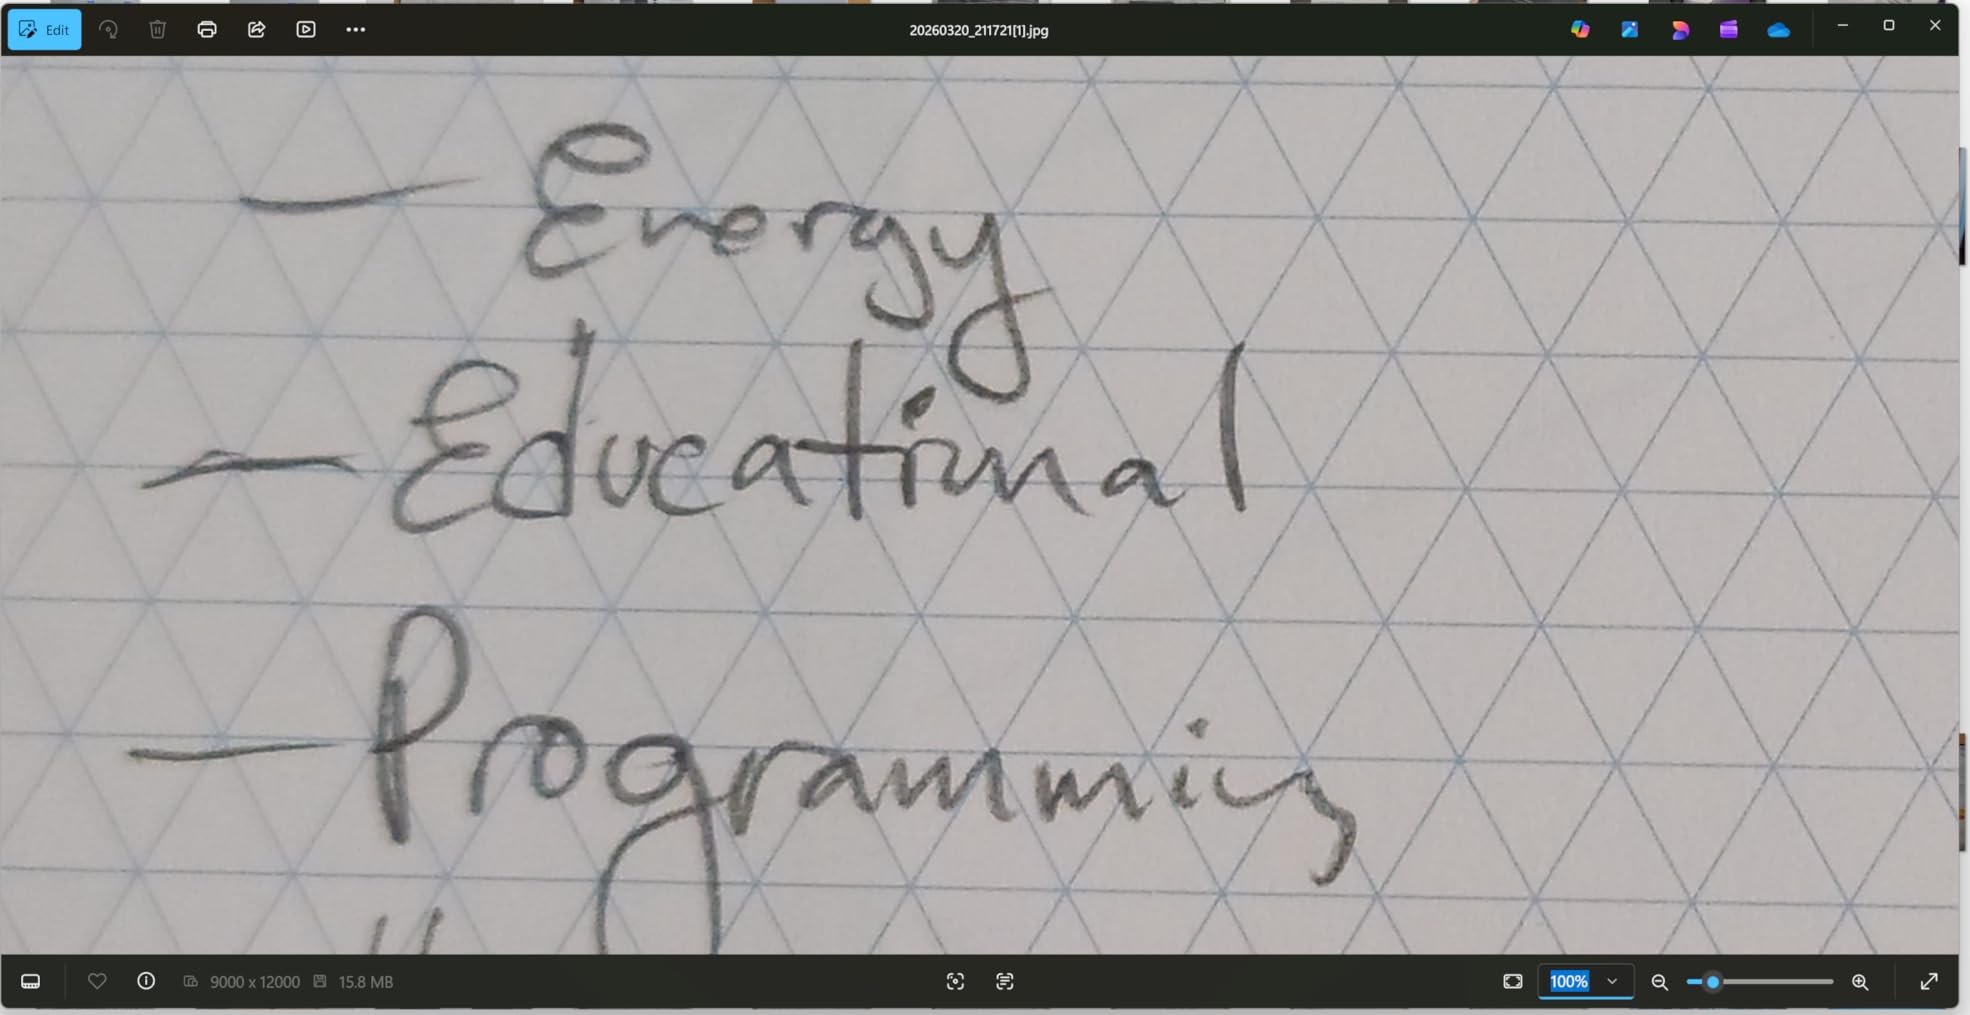 Edit
20260320_211721[1].jpg
— Energy
— Educational
— Programming
9000 x 12000 15.8 MB
100%